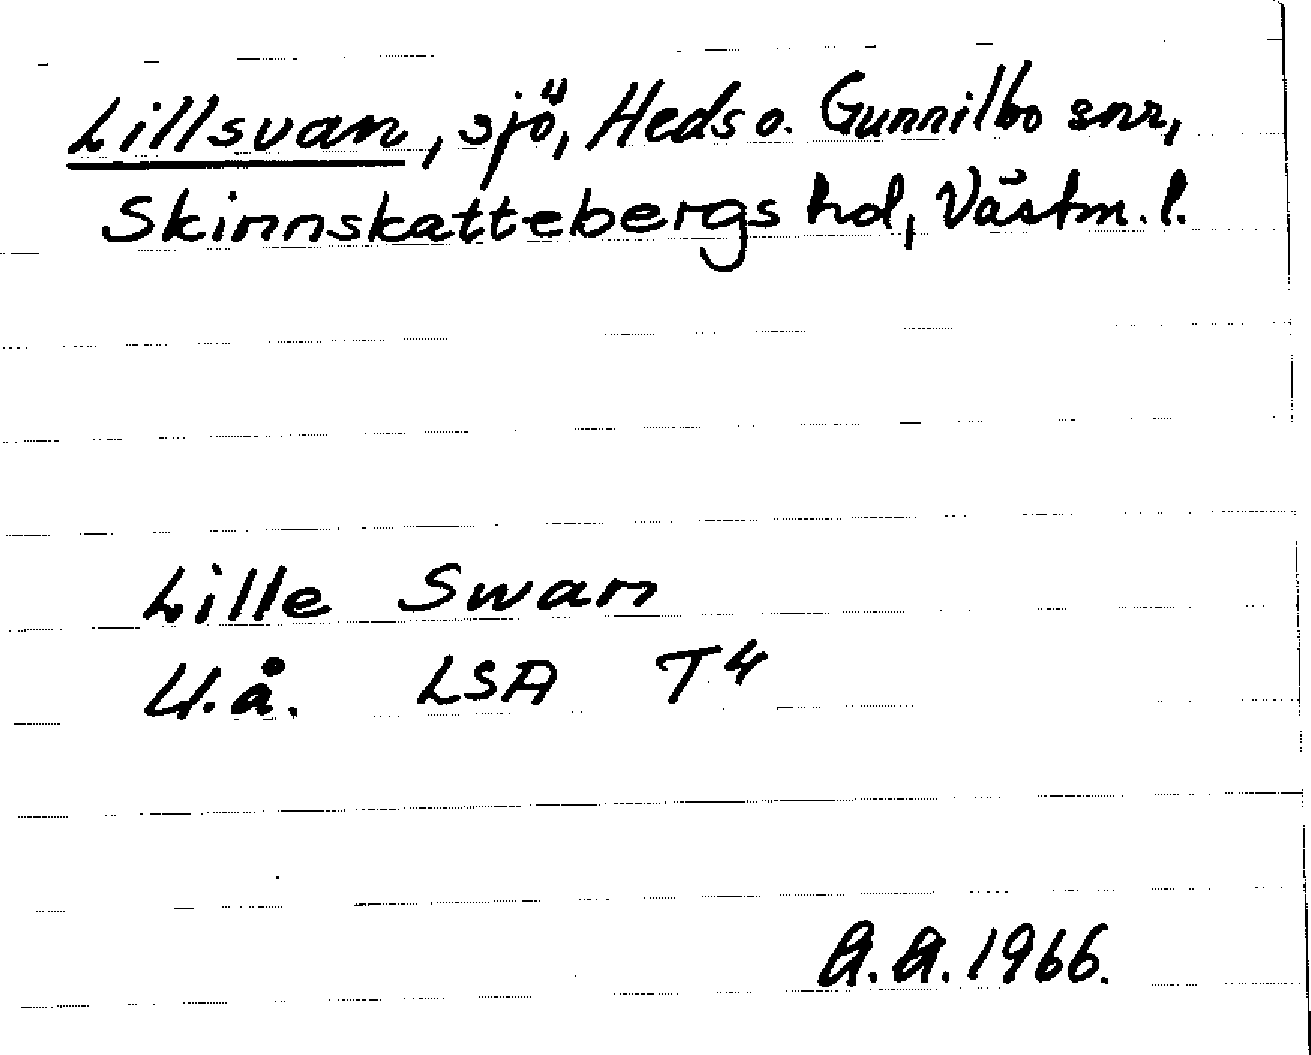 Lillsvan, sjö, Heds o. Gunnilbo snr,
Skinnskattebergs hd, Västm. l.
Lille Swan
U.å. LSA T4
A.A. 1966.